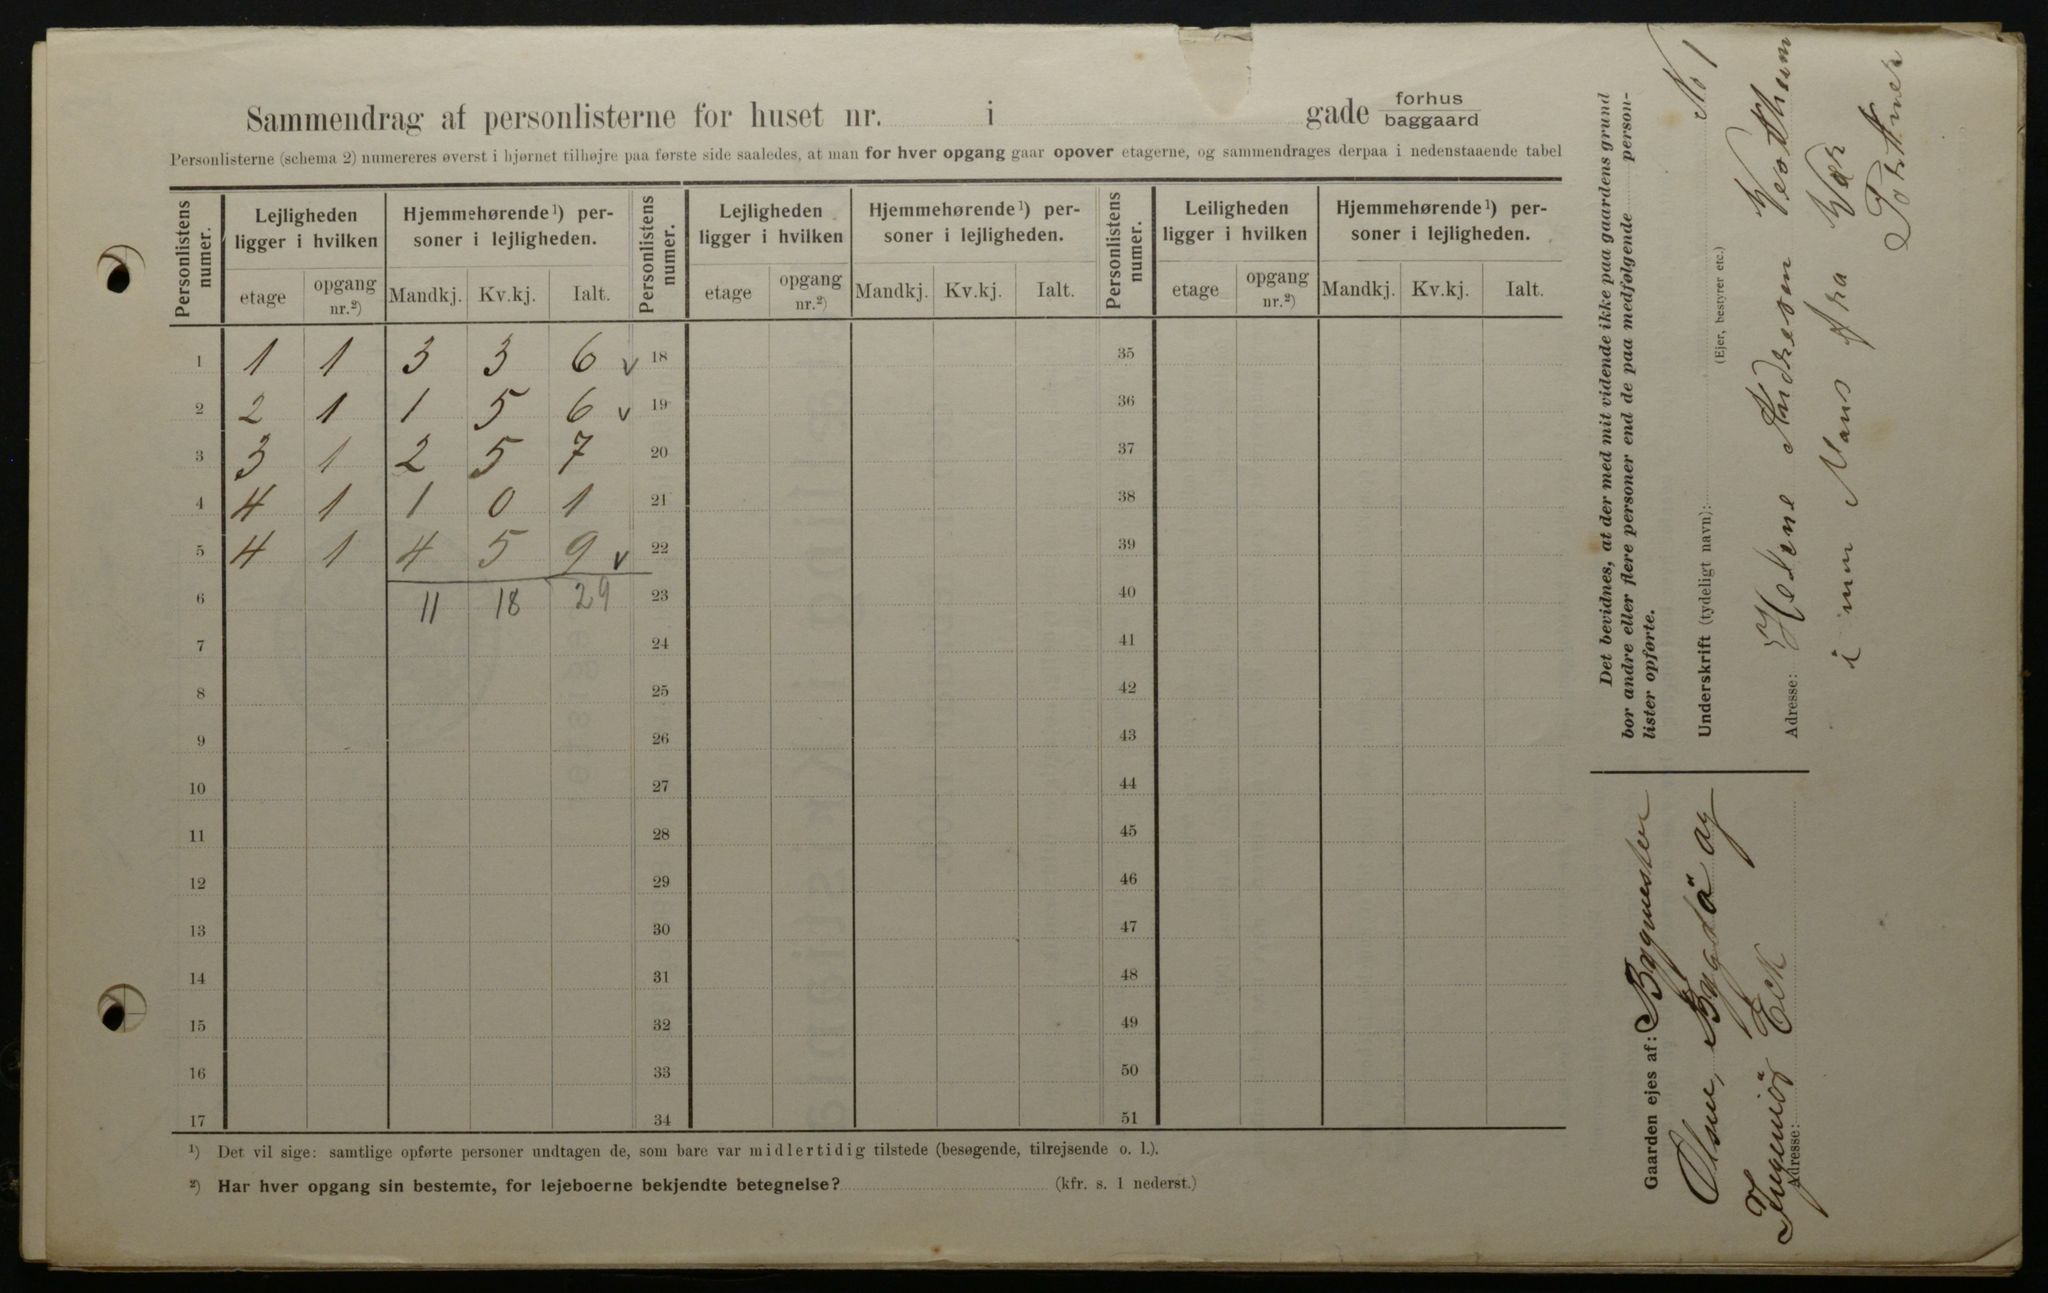 Sammendrag af personlisterne for huset nr. i gade forhus baggaard
Personlisterne (schema 2) numereres øverst i hjørnet tilhøjre paa første side saaledes, at man for hver opgang gaar opover etagerne, og sammendrages derpaa i nedenstaaende tabel
Personlistens numer. Lejligheden ligger i hvilken Hjemmehørende ¹) personer i lejligheden. Personlistens numer. Lejligheden ligger i hvilken Hjemmehørende ¹) personer i lejligheden. Personlistens numer. Leiligheden ligger i hvilken Hjemmehørende ¹) personer i lejligheden.
etage opgang nr.²) Mandkj. Kv.kj. Ialt. etage opgang nr.²) Mandkj. Kv.kj. Ialt. etage opgang nr.²) Mandkj. Kv.kj. Ialt.
1 1 1 3 3 6 v 18 35
2 2 1 1 5 6 v 19 36
3 3 1 2 5 7 20 37
4 4 1 1 0 1 21 38
5 4 1 4 5 9 v 22 39
6 11 18 29 23 40
7 24 41
8 25 42
9 26 43
10 27 44
11 28 45
12 29 46
13 30 47
14 31 48
15 32 49
16 33 50
17 34 51
¹) Det vil sige: samtlige opførte personer undtagen de, som bare var midlertidig tilstede (besøgende, tilrejsende o. l.).
²) Har hver opgang sin bestemte, for lejeboerne bekjendte betegnelse? (kfr. s. 1 nederst.)
Det bevidnes, at der med mit vidende ikke paa gaardens grund
bor andre eller flere personer end de paa medfølgende person-
lister opførte.
No 1
Underskrift (tydeligt navn):
(Ejer, bestyrer etc.)
Adresse: Helene Andresen
i min Mans fra Vær
Portner
Gaarden ejes af: Bygmester
Olsen, Bygdö og
Ingeniör Eck
Adresse: